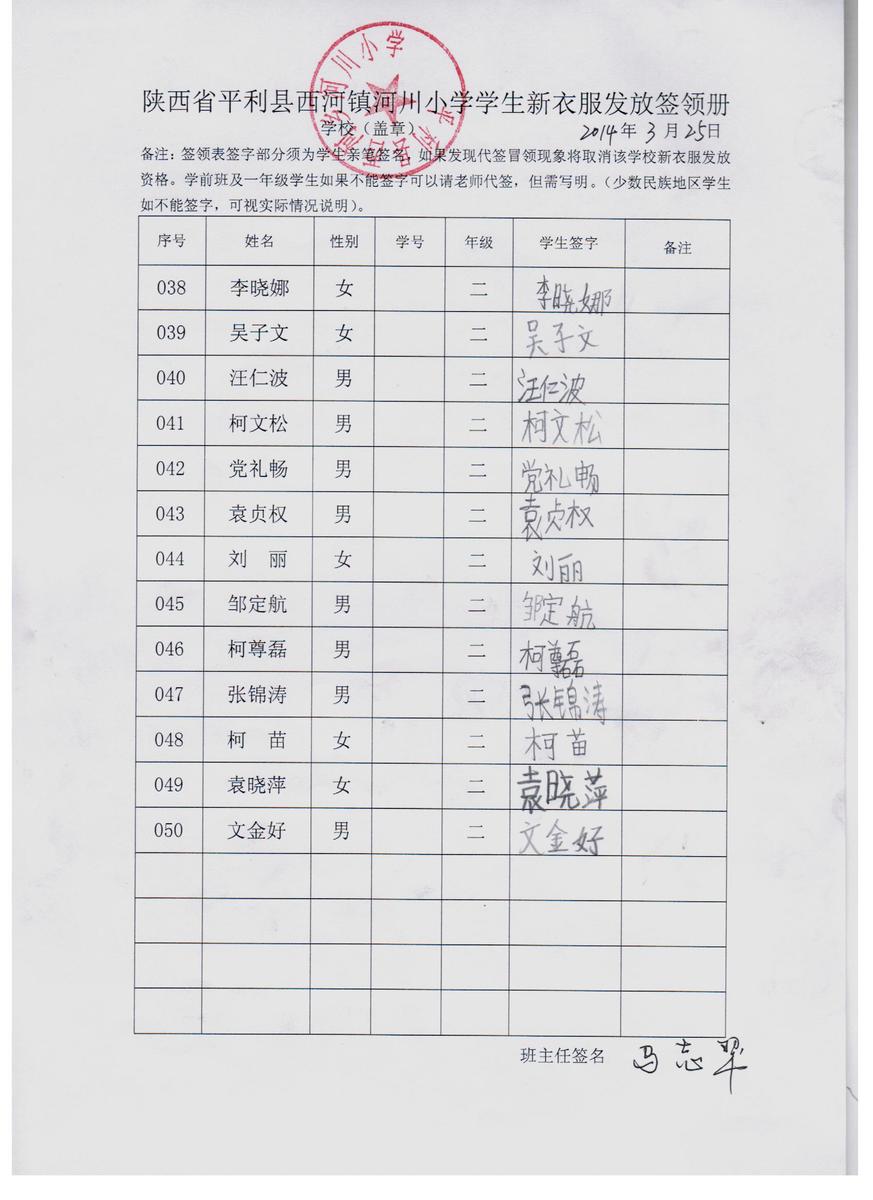 陕西省平利县西河镇河川小学学生新衣服发放签领册
学校（盖章） 2014年3月25日
备注：签领表签字部分须为学生亲笔签名，如果发现代签冒领现象将取消该学校新衣服发放
资格。学前班及一年级学生如果不能签字可以请老师代签，但需写明。（少数民族地区学生
如不能签字，可视实际情况说明）。
序号 姓名 性别 学号 年级 学生签字 备注
038 李晓娜 女 二 李晓娜
039 吴子文 女 二 吴子文
040 汪仁波 男 二 汪仁波
041 柯文松 男 二 柯文松
042 党礼畅 男 二 党礼畅
043 袁贞权 男 二 袁贞权
044 刘 丽 女 二 刘丽
045 邹定航 男 二 邹定航
046 柯尊磊 男 二 柯尊磊
047 张锦涛 男 二 张锦涛
048 柯 苗 女 二 柯苗
049 袁晓萍 女 二 袁晓萍
050 文金好 男 二 文金好
班主任签名 马志翠